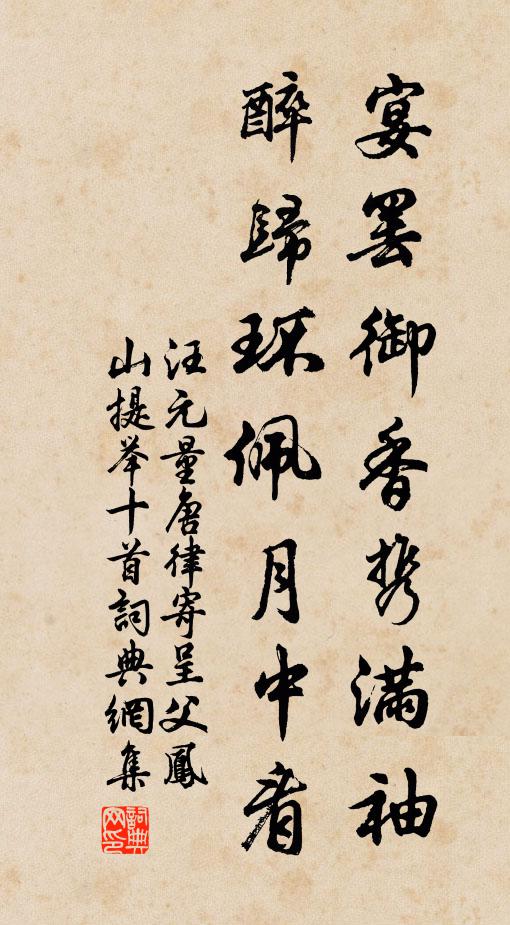 宴罢御香携满袖
醉歸环佩月中看
汪元量唐律寄呈父鳳
山提举十首詞典網集
詞典网印